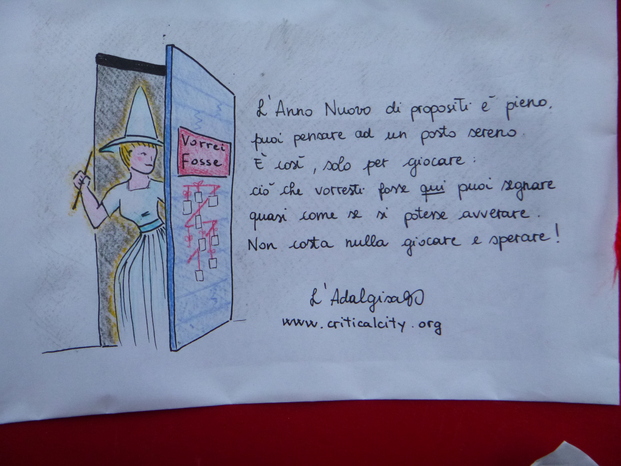 Vorrei
Fosse
L'Anno Nuovo di propositi è pieno.
puoi pensare ad un posto sereno.
È così, solo per giocare:
ciò che vorresti fosse qui puoi segnare
quasi come se si potesse avverare.
Non costa nulla giocare e sperare!
L'Adalgisa
www.criticalcity.org